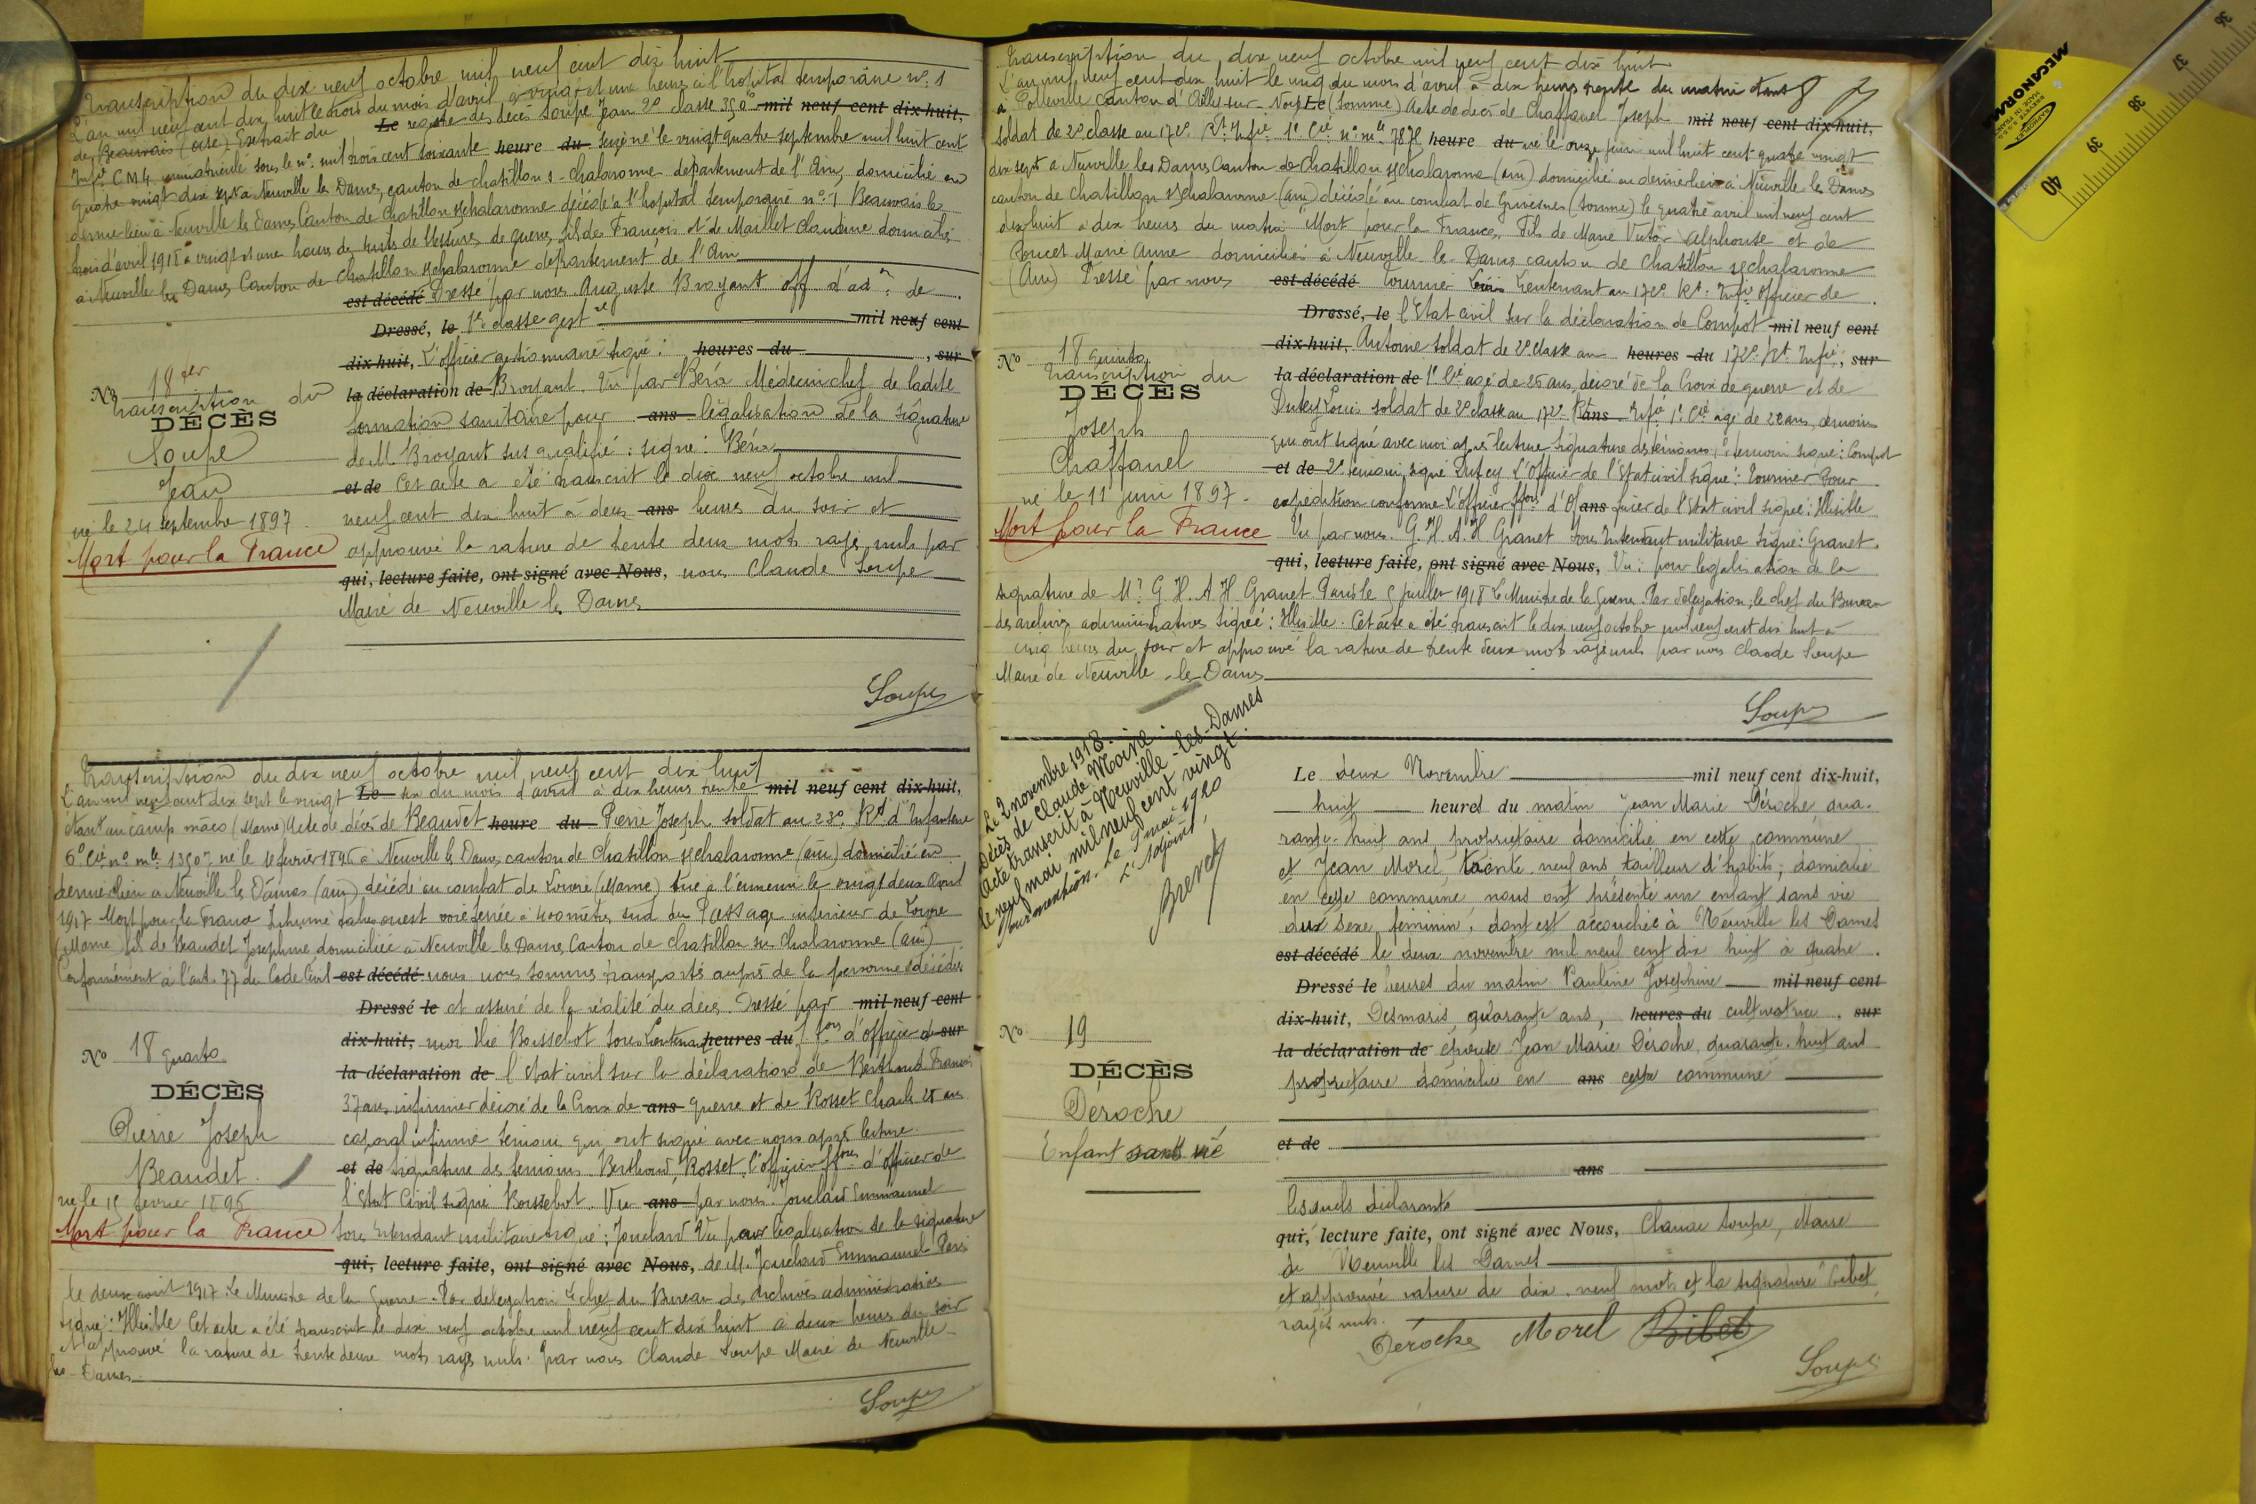 Transcription du dix neuf octobre mil neuf cent dix huit
L'an mil neuf cent dix huit le trois du mois d'avril à vingt et une heures à l'hopital temporaire n° 1
de Beauvais (Oise) Extrait du Le registre des décès Soupe Jean 2e classe 350e mil neuf cent dix-huit,
Infie C M 4 immatriculé sous le n° mil trois cent soixante heure du seize né le vingt quatre septembre mil huit cent
quatre vingt dix sept à Neuville les Dames, canton de Chatillon s-Chalaronne département de l'Ain, domicilié en
dernier lieu à Neuville les Dames Canton de Chatillon s/Chalaronne décédé à l'hopital temporaire n° 1 Beauvais le
trois d'avril 1918 à vingt et une heures de suites de blessures de guerre, fils de François et de Maillet Claudine domiciliés
à Neuville les Dames Canton de Chatillon s/Chalaronne département de l'Ain
est décédé Dressé par nous Auguste Broyant off d'adon de
Dressé, le 1re classe gestre mil neuf cent
dix-huit, L'officier gestionnaire signé : heures du , sur
la déclaration de Broyant. Vu par Béra Médecin chef de ladite
formation sanitaire pour ans légalisation de la signature
de M. Broyant sus qualifié : signé : Béra
et de Cet acte a été transcrit le dix neuf octobre mil
neuf cent dix huit à deux ans heures du soir et
approuvé la rature de trente deux mots rayés nuls par
qui, lecture faite, ont signé avec Nous, nous Claude Soupe
Maire de Neuville les Dames
N° 18 ter
Transcription du
DÉCÈS
Soupe
Jean
né le 24 septembre 1897.
Mort pour la France
Soupe
Transcription du dix neuf octobre mil neuf cent dix huit
L'an mil neuf cent dix sept le vingt Le six du mois d'avril à dix heures trente mil neuf cent dix-huit,
étant au camp (Marne) Acte de décès de Beaudet heure du Pierre Joseph soldat au 23e Rt d'Infanterie
6e Cie n° mle 1350, né le février 1896 à Neuville les Dames canton de Chatillon s/Chalaronne (ain) domicilié en
dernier lieu à Neuville les Dames (ain) décédé au combat de Loivre (Marne) tué à l'ennemi le vingt deux Avril
1917 Mort pour la France Inhumé talus ouest voie ferrée à 400 mètres sud du Passage inférieur de Loivre
(Marne) fils de Beaudet Josephine, domiciliée à Neuville les Dames Canton de Chatillon sur Chalaronne (ain)
Conformément à l'art. 77 du Code Civil est décédé nous nous sommes transportés auprès de la personne décédée
Dressé le et assuré de la réalité du décès Dressé par mil neuf cent
dix-huit, nous Elie Boissebot Sous Lieutenant heures du ffons d'officier de sur
la déclaration de l'état civil sur la déclaration de Berthoud François
37 ans, infirmier décoré de la Croix de ans guerre et de Rosset Charles 25 ans
caporal infirmier témoins qui ont signé avec nous après lecture.
et de Signature des témoins Berthoud, Rosset, l'officier ffons d'officier de
l'état Civil signé Boissebot. Vu ans par nous Jouclard Emmanuel
sous Intendant militaire signé : Jouclard Vu pour légalisation de la signature
qui, lecture faite, ont signé avec Nous, de M. Jouclard Emmanuel Paris
le deux août 1917. Le Ministre de la Guerre. Par délégation le chef du Bureau des Archives administratives
signé : Illisible Cet acte a été transcrit le dix neuf octobre mil neuf cent dix huit à deux heures du soir
et approuvé la rature de trente deux mots rayés nuls. par nous Claude Soupe Maire de Neuville
les-Dames
N° 18 quarto
DÉCÈS
Pierre Joseph
Beaudet.
né le février 1896
Mort pour la France
Soupe
Transcription du dix neuf octobre mil neuf cent dix huit
L'an mil neuf cent dix huit le cinq du mois d'avril à dix heures trente du matin étant
à canton d'Ailly sur Noye Le (Somme) Acte de décès de Chaffanel Joseph mil neuf cent dix-huit,
soldat de 2e classe au 172e Rt Infie 1e Cie n° mle 7878 heure du né le onze juin mil huit cent quatre vingt
dix sept à Neuville les Dames Canton de Chatillon s/Chalaronne (ain) domicilié en dernier lieu à Neuville les Dames
canton de Chatillon s/Chalaronne (ain) décédé au combat de Grivesnes (Somme) le quatre avril mil neuf cent
dix huit à dix heures du matin "Mort pour la France" Fils de Marie Victor Alphonse et de
Poncet Marie Anne domiciliés à Neuville les Dames canton de Chatillon s/Chalaronne
(Ain) Dressé par nous est décédé Tournier Louis Lieutenant au 172e Rt Infie Officier de
Dressé, le l'Etat civil sur la déclaration de Compot mil neuf cent
dix-huit, Antoine soldat de 2e classe au heures du 172e Rt Infie, sur
la déclaration de 1e Cie agé de 26 ans, décoré de la Croix de guerre et de
Dutey Louis soldat de 2e classe au 172e Rt ans Infie 1e Cie agé de 22 ans, témoins
qui ont signé avec moi après lecture signature des témoins, 1e témoin signé : Compot
et de 2e témoin, signé Dutey L'Officier de l'état civil signé : Tournier Pour
expédition conforme L'officier ffons d'Of ans ficier de l'état civil signé : Illisible
Vu par nous. G. H. A. H Granet Sous Intendant militaire signé : Granet.
qui, lecture faite, ont signé avec Nous, Vu : pour légalisation de la
signature de Mr G. H. A. H Granet Paris le 5 juillet 1918 Le Ministre de la Guerre. Par délégation, le chef du Bureau
des archives administratives signé : Illisible. Cet acte a été transcrit le dix neuf octobre mil neuf cent dix huit à
cinq heures du soir et approuvé la rature de trente deux mots rayés nuls par nous Claude Soupe
Maire de Neuville-les-Dames
N° 18 quinto
Transcription du
DÉCÈS
Joseph
Chaffanel
né le 11 juin 1897.
Mort pour la France
Soupe
Le 2 novembre 1918.
Décès de Claude Moine.
Acte transcrit à Neuville-les-Dames
le neuf mai mil neuf cent vingt.
Pour mention. Le 9 mai 1920
L'Adjoint,
Brevet
Le deux Novembre mil neuf cent dix-huit,
huit heures du matin Jean Marie Déroche qua-
rante-huit ans, propriétaire domicilié en cette commune
et Jean Morel, trente neuf ans, tailleur d'habits, domicilié
en cette commune nous ont présenté un enfant sans vie
du sexe féminin, dont est accouchée à Neuville les Dames
est décédé le deux novembre mil neuf cent dix huit à quatre
Dressé le heures du matin Pauline Josephine mil neuf cent
dix-huit, Desmaris, quarante ans, heures du cultivatrice, sur
la déclaration de épouse Jean Marie Déroche, quarante-huit ans
propriétaire domiciliés en ans cette commune
et de
ans
lesquels déclarants
qui, lecture faite, ont signé avec Nous, Claude Soupe, Maire
de Neuville les Dames
et approuvé rature de dix-neuf mots et la signature "Bibet"
rayés nuls.
Déroche Morel Bibet
Soupe
N° 19
DÉCÈS
Déroche
Enfant sans vie
MECANORMA
BREVETE S.G.D.G.
MADE IN FRANCE
36
37
38
39
40